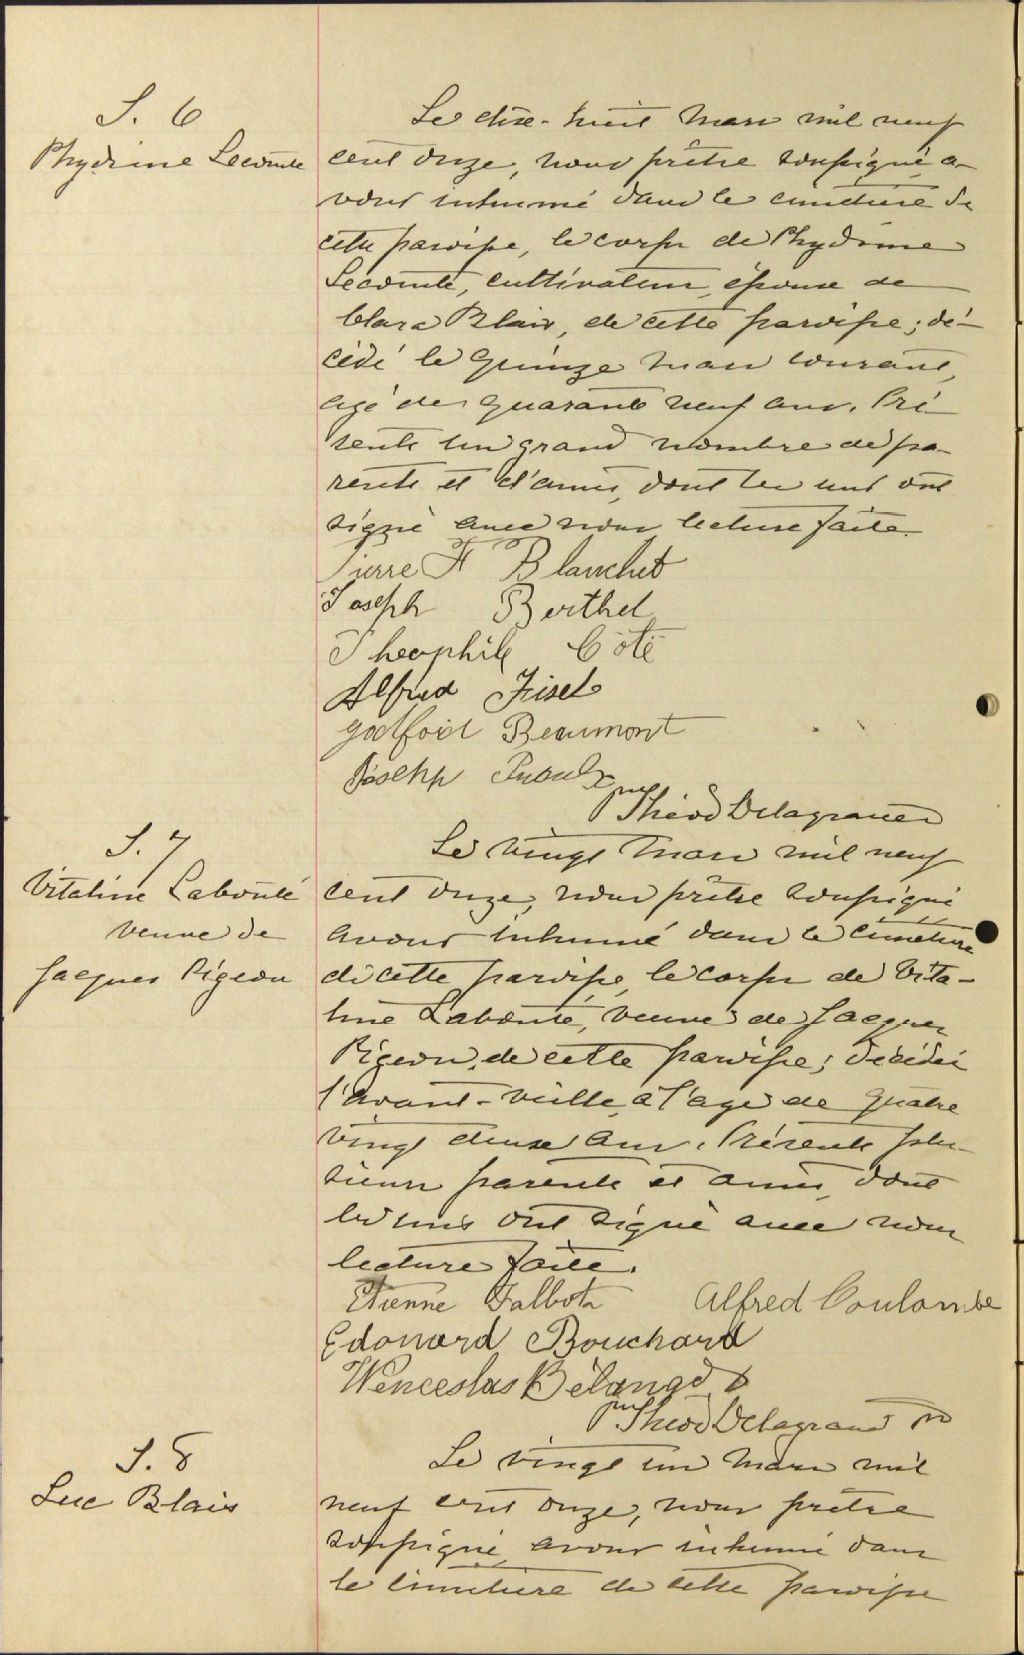 S. 6
Phydime Lecomte
Le dix-huit mars mil neuf
cent onze, nous prêtre soussigné a-
vons inhumé dans le cimetière de
cette paroisse, le corps de Phydime
Lecomte, cultivateur, époux de
Clara Blais, de cette paroisse; dé-
cédé le quinze mars courant,
agé de quarante neuf ans. Pré
sents un grand nombre de pa-
rents et d'amis, dont les uns ont
signé avec nous lecture faite.
Pierre F Blanchet
Joseph Berthel
Theophile Côté
Alfred Fiset
Godfoid Beaumont
Joseph Proulx
Théod Delagrave
S. 7
Vitaline Labonté
veuve de
Jacques Pigeon
Le vingt mars mil neuf
cent onze, nous prêtre soussigné
avons inhumé dans le cimetière
de cette paroisse, le corps de Vita-
line Labonté, veuve de Jacques
Pigeon, de cette paroisse; décédée
l'avant-veille à l'age de quatre
vingt deux ans. Présents plu-
sieurs parents et amis, dont
les uns ont signé avec nous
lecture faite.
Etienne Talbot Alfred Coulombe
Edouard Bouchard
Wenceslas Bélanger
Théod Delagrave
S. 8
Luc Blais
Le vingt un mars mil
neuf cent onze, nous prêtre
soussigné, avons inhumé dans
le cimetière de cette paroisse